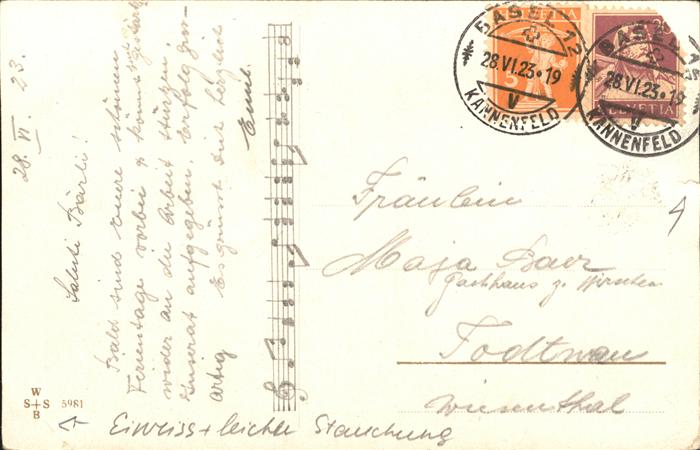 28. VI. 23.
Saluti Bärli!
Bald sind eure schönen
Ferientage vorbei & könnt ihr
wider an die Arbeit stürzen.
Inserat aufgegeben. Erfolg
artig Es grüsst dich herzlich
Emil.
HELVETIA
5
BASEL 12
28.VI.23·19
V
KANNENFELD
BASEL 12
28.VI.23·19
V
KANNENFELD
HELVETIA
Fräulein
Maja Baer
Gasthaus z. Hirschen
Todtnau
Wiesenthal
W
S+S
B
5981
Einriss + leichte Stauchung